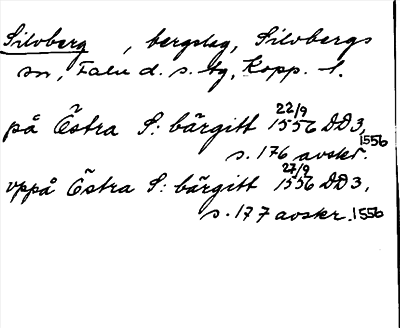 Silvberg, bergslag, Silvbergs
sn, Falu d. s. tg, Kopp. l.
på Östra S: bärgitt 22/9 1556 DD3,
s. 176 avskr. 1556
vppå Östra S: bärgitt 27/9 1556 DD3,
s. 177 avskr. 1556